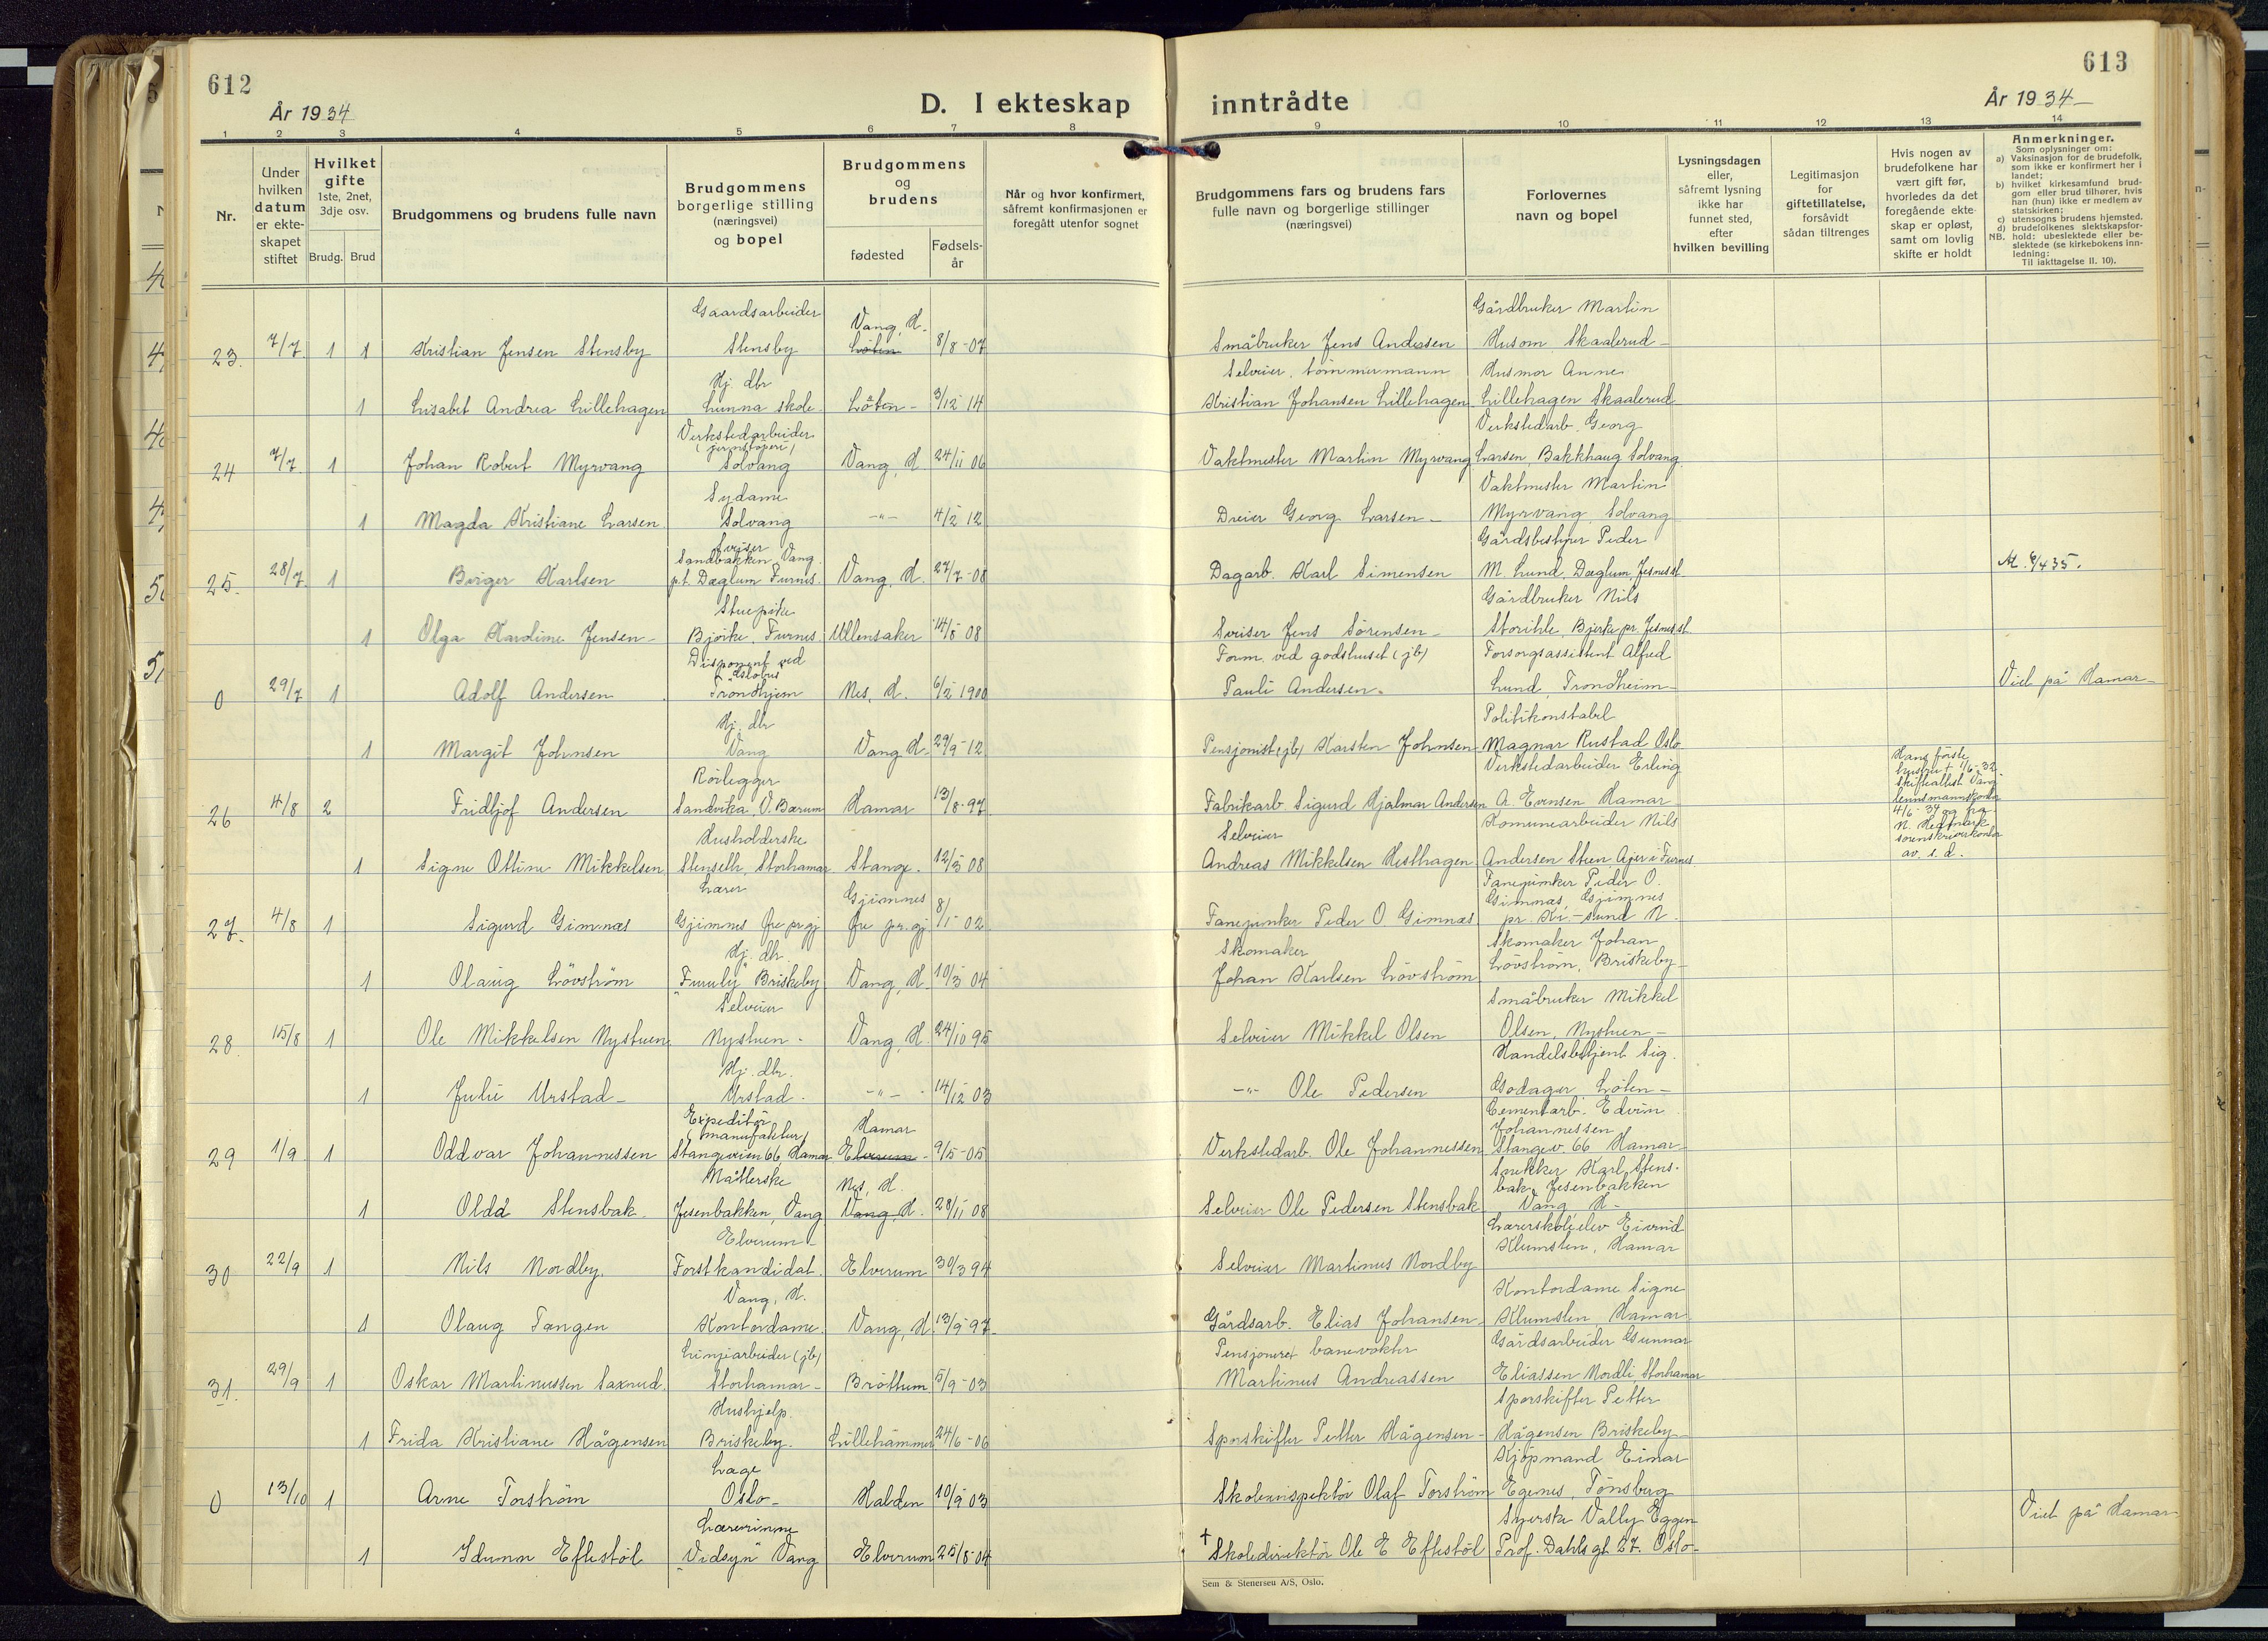 612
År 1934
D. I ekteskap
inntrådte
613
År 1934
1 2 3 4 5 6 7 8 9 10 11 12 13 14
Nr.
Under hvilken datum er ekte-skapet stiftet
Hvilket gifte 1ste, 2net, 3dje osv.
Brudg. Brud
Brudgommens og brudens fulle navn
Brudgommens borgerlige stilling (næringsvei) og bopel
Brudgommens og brudens
fødested
Fødsels-år
Når og hvor konfirmert, såfremt konfirmasjonen er foregått utenfor sognet
Brudgommens fars og brudens fars fulle navn og borgerlige stillinger (næringsvei)
Forlovernes navn og bopel
Lysningsdagen eller, såfremt lysning ikke har funnet sted, efter hvilken bevilling
Legitimasjon for giftetillatelse, forsåvidt sådan tiltrenges
Hvis nogen av brudefolkene har vært gift før, hvorledes da det foregående ekte-skap er opløst, samt om lovlig skifte er holdt
Anmerkninger.
Som oplysninger om:
a) Vaksinasjon for de brudefolk, som ikke er konfirmert her i landet;
b) hvilket kirkesamfund brud-gom eller brud tilhører, hvis han (hun) ikke er medlem av statskirken;
c) utensogns brudens hjemsted.
d) brudefolkenes slektskapsfor-hold: ubeslektede eller be-slektede (se kirkebokens inn-ledning:
NB. Til iakttagelse II. 10).
23. 7/7 1 1 Kristian Jensen Stensby Gaardsarbeider Stensby Vang, H. Löten 8/8-07 Småbruker Jens Andersen Gårdbruker Martin Husom Skaalerud-
1 Lisabet Andrea Lillehagen Hj. dtr Lunna skole- Löten- 3/12 14 Selveier, tömmermann Kristian Johansen Lillehagen Husmor Anne Lillehagen Skaalerud
24 7/7 1 Johan Robert Myrvang Verkstedarbeider (jernstöperi) Solvang Vang, H 24/11 06 Vaktmester Martin Myrvang Verkstedarb. Georg Larsen, Bakkhaug Solvang
1 Magda Kristiane Larsen Sydame Solvang -"- 4/2 12 Dreier Georg Larsen- Vaktmester Martin Myrvang Solvang
25. 28/7 1 Birger Karlsen Sveiser Sandbakken Vang p.t. Dæglum Furnes. Vang, H. 27/7-08 Dagarb. Karl Simensen Gårdsbestyrer Peder M. Lund, Dæglum, Jesnes st.
1 Olga Karoline Jensen- Stuepike Bjørke, Furnes Ullensaker 14/5 08 Sveiser Jens Sørensen- Gårdbruker Nils Storihle, Bjerke pr. Jesnes st.
0 29/7 1 Adolf Andersen Disponent ved Trondhjem Nes, H. 6/2 1900 Form. ved godshuset (jb) Pauli Andersen. Forsorgsassistent Alfred Lund, Trondheim- Viet på Hamar-
1 Margit Johnsen Hj. dtr Vang Vang H. 29/9-12 Pensjonist (jb) Karsten Johnsen Politikonstabel Magnar Rustad Oslo
26 4/8 2 Fridtjof Andersen Rörlegger Sandvika, V. Bærum Hamar 13/8-97 Fabrikarb. Sigurd Hjalmar Andersen Verkstedarbeider Erling A. Evensen Hamar Hans første hustru † 1/6-32 Skifteattest Vang lensmannskontor 4/6 34 og fra N. Hedmark sorenskriverkontor av s. d.
1 Signe Ottine Mikkelsen Husholderske Stenseth, Storhamar Stange. 12/5 08 Selveier Andreas Mikkelsen Hesthagen Komunearbeider Nils Andersen Steen Ajer i Furnes
27. 4/8 1 Sigurd Gimnæs Lærer Gjimnes Øre pr. gj Gjimnes Øre pr. gj 8/1 02 Fanejunker Peder O Gimnæs Fanejunker Peder O. Gimnæs, Gjimnes pr. Kr.-sund N.
1 Olaug Lövström Hj. dtr. "Furuly" Briskeby Vang, H. 10/3 04 Skomaker Johan Karlsen Lövström Skomaker Johan Lövström, Briskeby-
28. 15/8 1 Ole Mikkelsen Nystuen Selveier Nystuen- Vang, H. 24/10 95 Selveier Mikkel Olsen Småbruker Mikkel Olsen, Nystuen-
1 Julie Urstad- Hj. dtr. Urstad- -"- 14/12 03 -"- Ole Pedersen Handelsbetjent Sig. Godager Löten-
29 1/9 1 Oddvar Johannessen Expeditör (manufaktur) Stangeveien 66 Hamar Hamar Elverum- 9/5-05 Verkstedarb. Ole Johannessen Cementarb. Edvin Johannessen Stangev. 66 Hamar-
1 Oldd Stensbak Måtterske Jesenbakken, Vang Nes, H. Vang, H. 28/11 08 Selveier Ole Pedersen Stensbak Snekker Karl Stens-bak, Jesenbakken Vang H-
30 22/9 1 Nils Nordby. Elverum- Forstkandidat. Elverum 30/3 94 Selveier Martinus Nordby Lærerskoleelev Eivind Klumsten, Hamar
1 Olaug Tangen Vang, H. Kontordame. Vang, H. 13/9-97- Gårdsarb. Elias Johansen- Kontordame Signe Klumsten, Hamar
31. 29/9 1 Oskar Martinussen Saxrud. Linjearbeider (jb) Storhamar- Bröttum 5/9-03 Pensjonert banevokter Martinus Andreassen Gårdsarbeider Gunnar Eliassen Nordli Storhamar
1 Frida Kristiane Hågensen Hushjelp. Briskeby- Lillehammer 24/6-06 Sporskifter Petter Hågensen- Sporskifter Petter Hågensen Briskeby-
0 13/10 1 Arne Torström Læge Oslo- Halden 10/9 03 Skoleinspektör Olaf Torström Kjöpmand Einar Egenes, Tönsberg Viet på Hamar
1 Idunn Eftestöl Lærerinne "Vidsyn" Vang Elverum 25/8-04 † Skoledirektör Ole E Eftestöl Syerske Vally Eggen Prof. Dahls gt. 27. Oslo-
Sem & Stenersen A/S, Oslo.